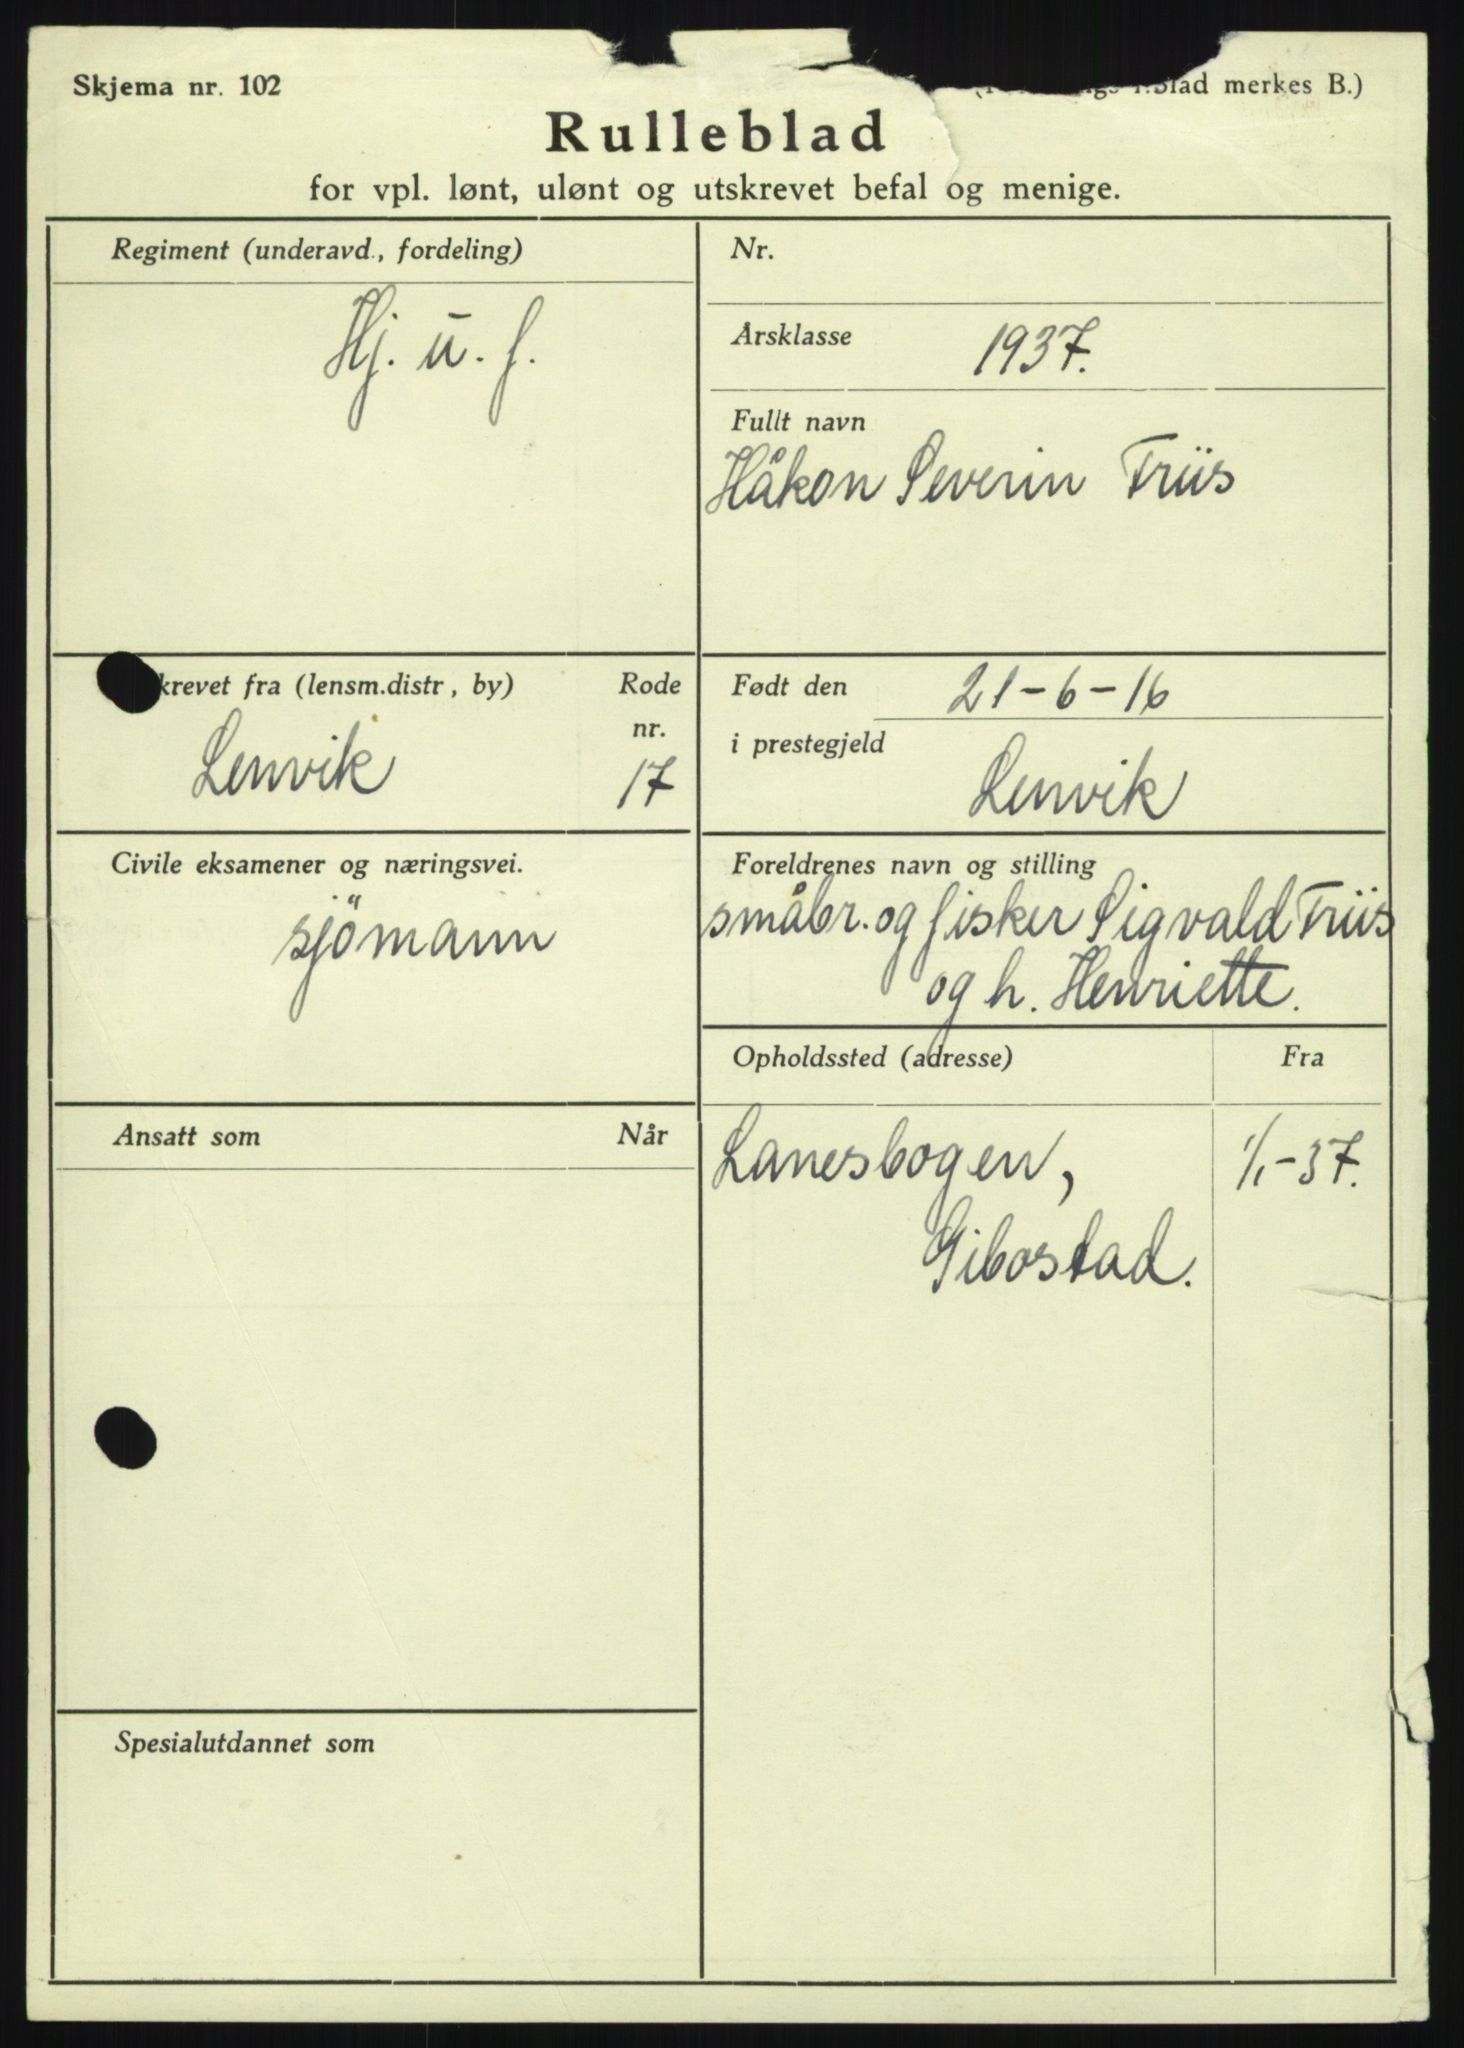 Skjema nr. 102
blad merkes B.)
Rulleblad
for vpl. lønt, ulønt og utskrevet befal og menige.
Regiment (underavd., fordeling)
Hj. u. f.
Nr.
Årsklasse 1937.
Fullt navn
Håkon Severin Friis
krevet fra (lensm.distr, by)
Rode
nr.
Lenvik
17
Født den 21-6-16
i prestegjeld
Lenvik
Civile eksamener og næringsvei.
sjömann
Foreldrenes navn og stilling
småbr. og fisker Sigvald Friis
og h. Henriette.
Opholdssted (adresse)
Fra
Lanesbogen, 1/1-37.
Gibostad.
Ansatt som
Når
Spesialutdannet som